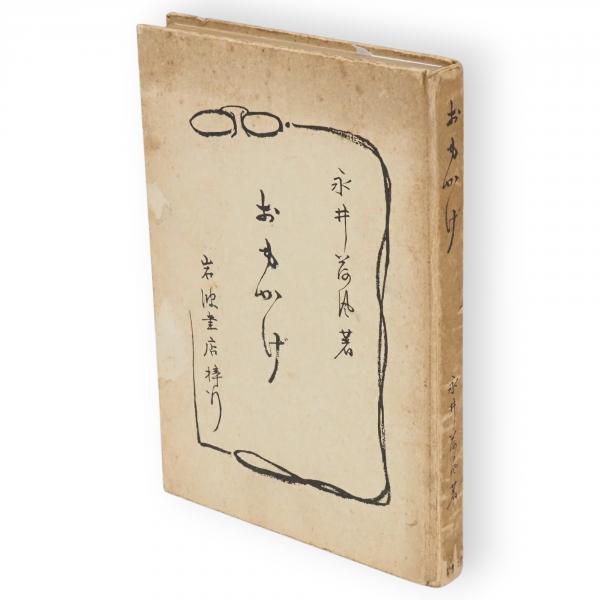 永井荷風著
おもかげ
岩波書店梓行
おもかげ
永井荷風著